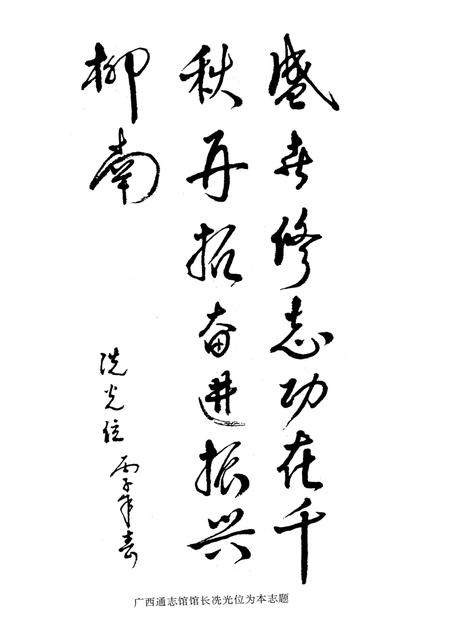 盛世修志功在千
秋再招奋进振兴
柳南
冼光位
丙子年春
广西通志馆馆长冼光位为本志题